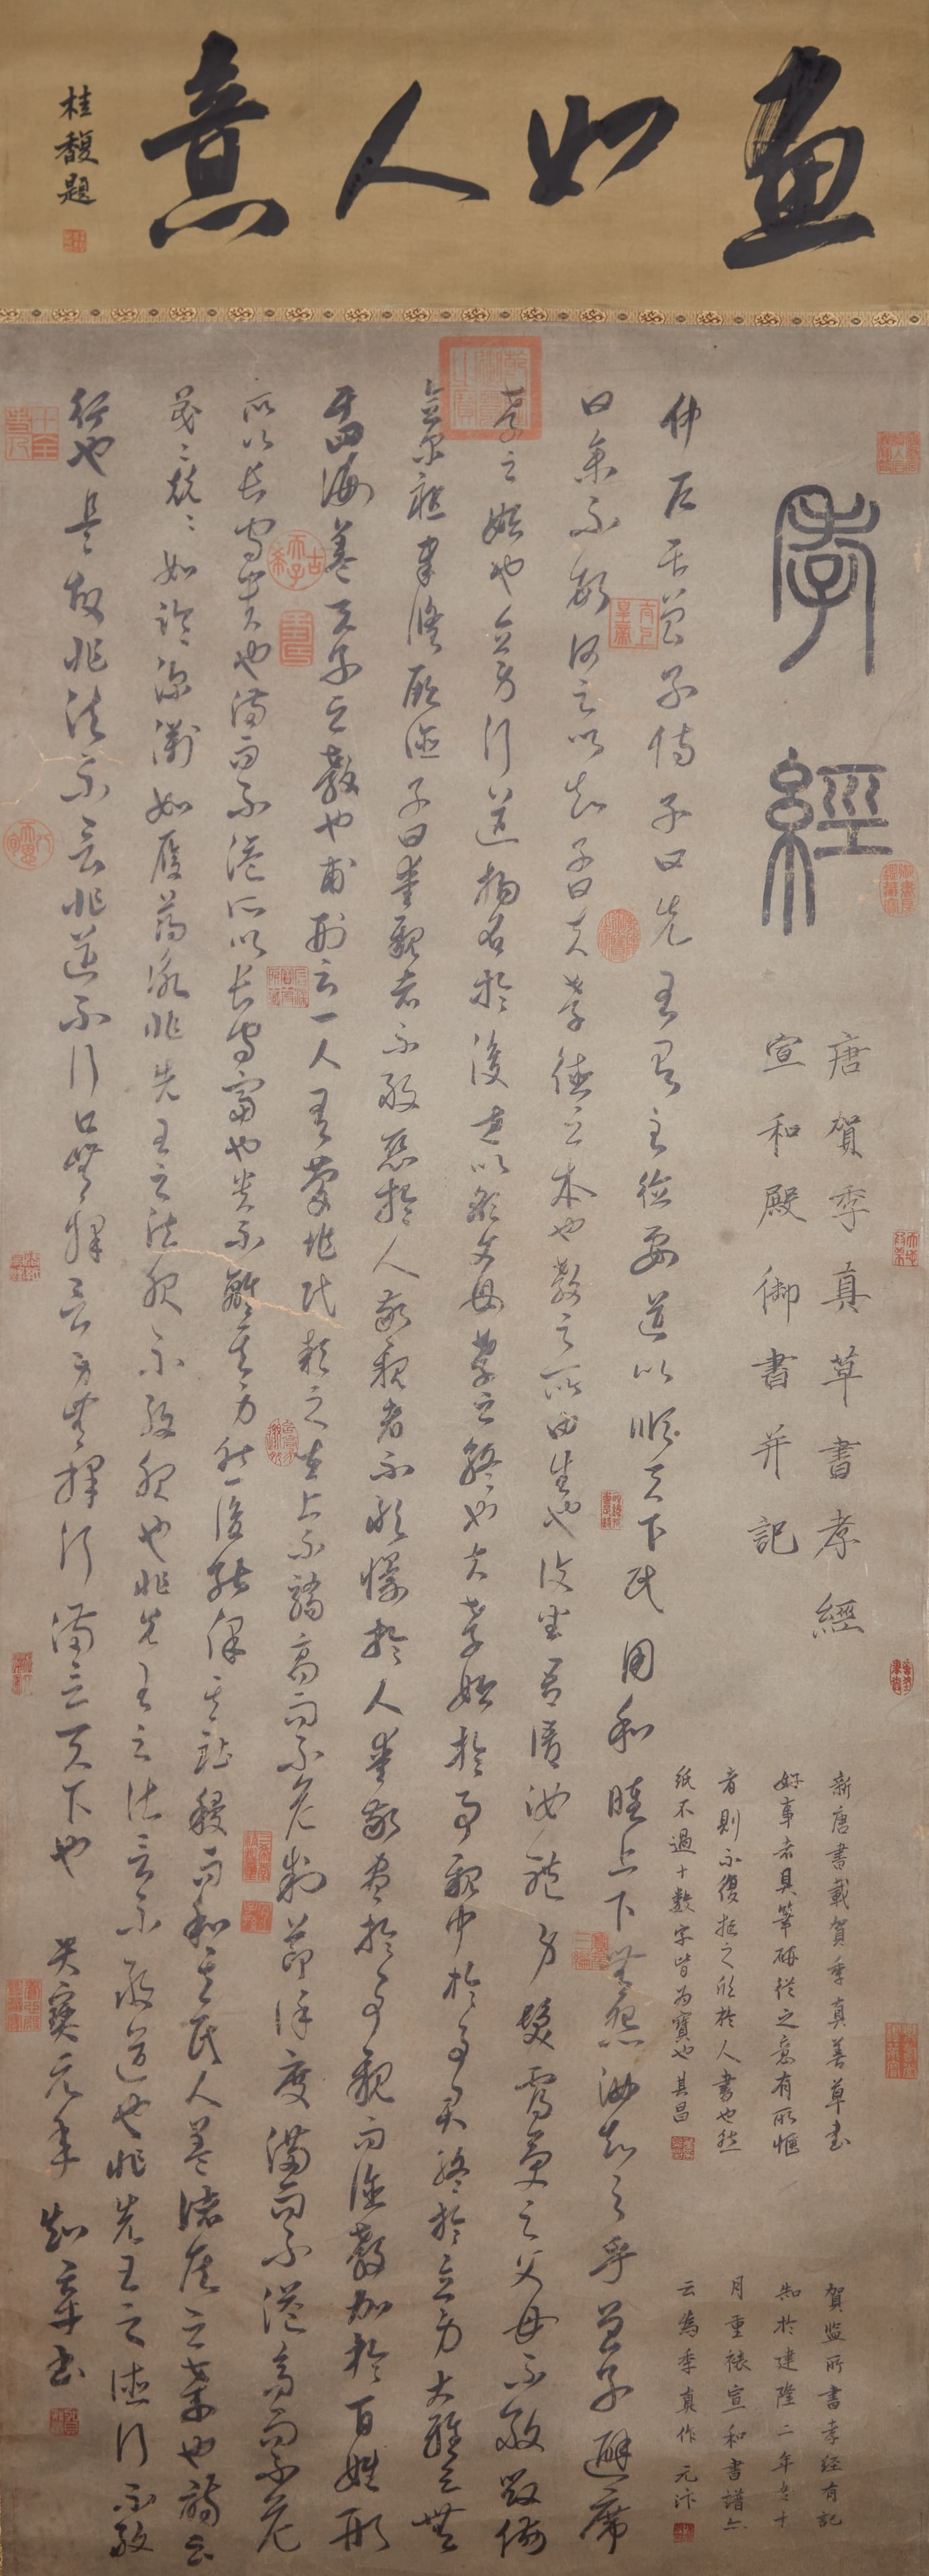 畫如人意
桂馥題
孝經
唐賀季真草書孝經
宣和殿御書并記
新唐書載賀季真善草書
好事者具筆硯從之意有所愜
者則不復拒之欣於人書也然
紙不過十數字皆為寶也其昌
賀監所書孝經有記
知於建隆二年冬十
月重裱宣和書譜亦
云為季真作元汴
仲尼居曾子侍子曰先王有至德要道以順天下民用和睦上下無怨汝知之乎曾子避席
曰參不敏何足以知子曰夫孝德之本也教之所由生也復坐吾語汝體身髮膚受之父母不敢毀傷
孝之始也立身行道揚名於後世以顯父母孝之終也夫孝始於事親中於事君終於立身大雅云無
念爾祖聿脩厥德子曰愛親者不敢惡於人敬親者不敢慢於人愛敬盡於事親而德教加於百姓形
于四海蓋天子之孝也甫刑云一人有慶兆民賴之在上不驕高而不危制節謹度滿而不溢高而不危
所以長守貴也滿而不溢所以長守富也貴不離其身然後能保其社稷而和其民人蓋諸侯之孝也詩云
戰戰兢兢如臨深淵如履薄冰非先王之法服不敢服也非先王之法言不敢道也非先王之德行不敢
行也是故非法不言非道不行口無擇言身無擇行滿言天下也 天寶元年 知章書